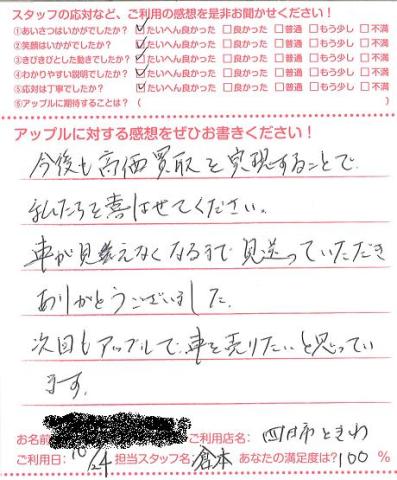 スタッフの応対など、ご利用の感想を是非お聞かせください!
①あいさつはいかがでしたか? ☑たいへん良かった □良かった □普通 □もう少し □不満
②笑顔はいかがでしたか? ☑たいへん良かった □良かった □普通 □もう少し □不満
③きびきびとした動きでしたか? ☑たいへん良かった □良かった □普通 □もう少し □不満
④わかりやすい説明でしたか? ☑たいへん良かった □良かった □普通 □もう少し □不満
⑤応対は丁寧でしたか? ☑たいへん良かった □良かった □普通 □もう少し □不満
⑥アップルに期待することは? (
アップルに対する感想をぜひお書きください!
今後も高価買取を実現することで
私たちを喜ばせてください。
車が見えなくなるまで見送っていただき
ありがとうございました。
次回もアップルで車を売りたいと思ってい
ます。
お名前 ご利用店名: 四日市ときわ
ご利用日: 10/24 担当スタッフ名: 倉本 あなたの満足度は? 100 %